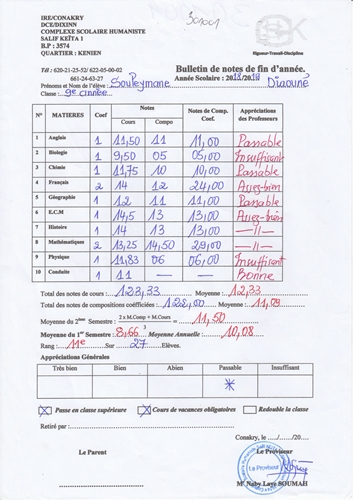 IRE/CONAKRY
DCE/DIXINN
COMPLEXE SCOLAIRE HUMANISTE
SALIF KEÏTA 1
B.P : 3574
QUARTIER : KENIEN
301001
Rigueur-Travail-Discipline
Tél : 620-21-25-52/ 622-05-00-02
661-24-63-27
Bulletin de notes de fin d'année.
Année Scolaire : 2018/2019
Prénoms et Nom de l'élève : Souleymane Diaouné
Classe : 9e année
N° MATIERES Coef Notes Notes de Comp. Coef. Appréciations des Professeurs
Cours Compo
1 Anglais 1 11,50 11 11,00 Passable
2 Biologie 1 9,50 05 05,00 Insuffisant
3 Chimie 1 11,75 10 10,00 Passable
4 Français 2 14 12 24,00 Assez-bien
5 Géographie 1 12 11 11,00 Passable
6 E.C.M 1 14,5 13 13,00 Assez-bien
7 Histoire 1 14 13 13,00 —//—
8 Mathématiques 2 13,25 14,50 29,00 —//—
9 Physique 1 11,83 06 06,00 Insuffisant
10 Conduite 1 11 — — Bonne
Total des notes de cours : 123,33 Moyenne : 12,33
Total des notes de compositions coéfficiées : 122,00 Moyenne : 11,09
Moyenne du 2ème Semestre : 2 x M.Comp + M.Cours / 3 = 11,50
Moyenne du 1er Semestre : 8,66 Moyenne Annuelle : 10,08
Rang : 11e Sur 27 Elèves.
Appréciations Générales
Très bien Bien Abien Passable Insuffisant
Passe en classe supérieure Cours de vacances obligatoires Redouble la classe
Retiré par :
Conakry, le ..../...../20....
Le Parent Le Proviseur
Le Proviseur
M. Naby Laye SOUMAH